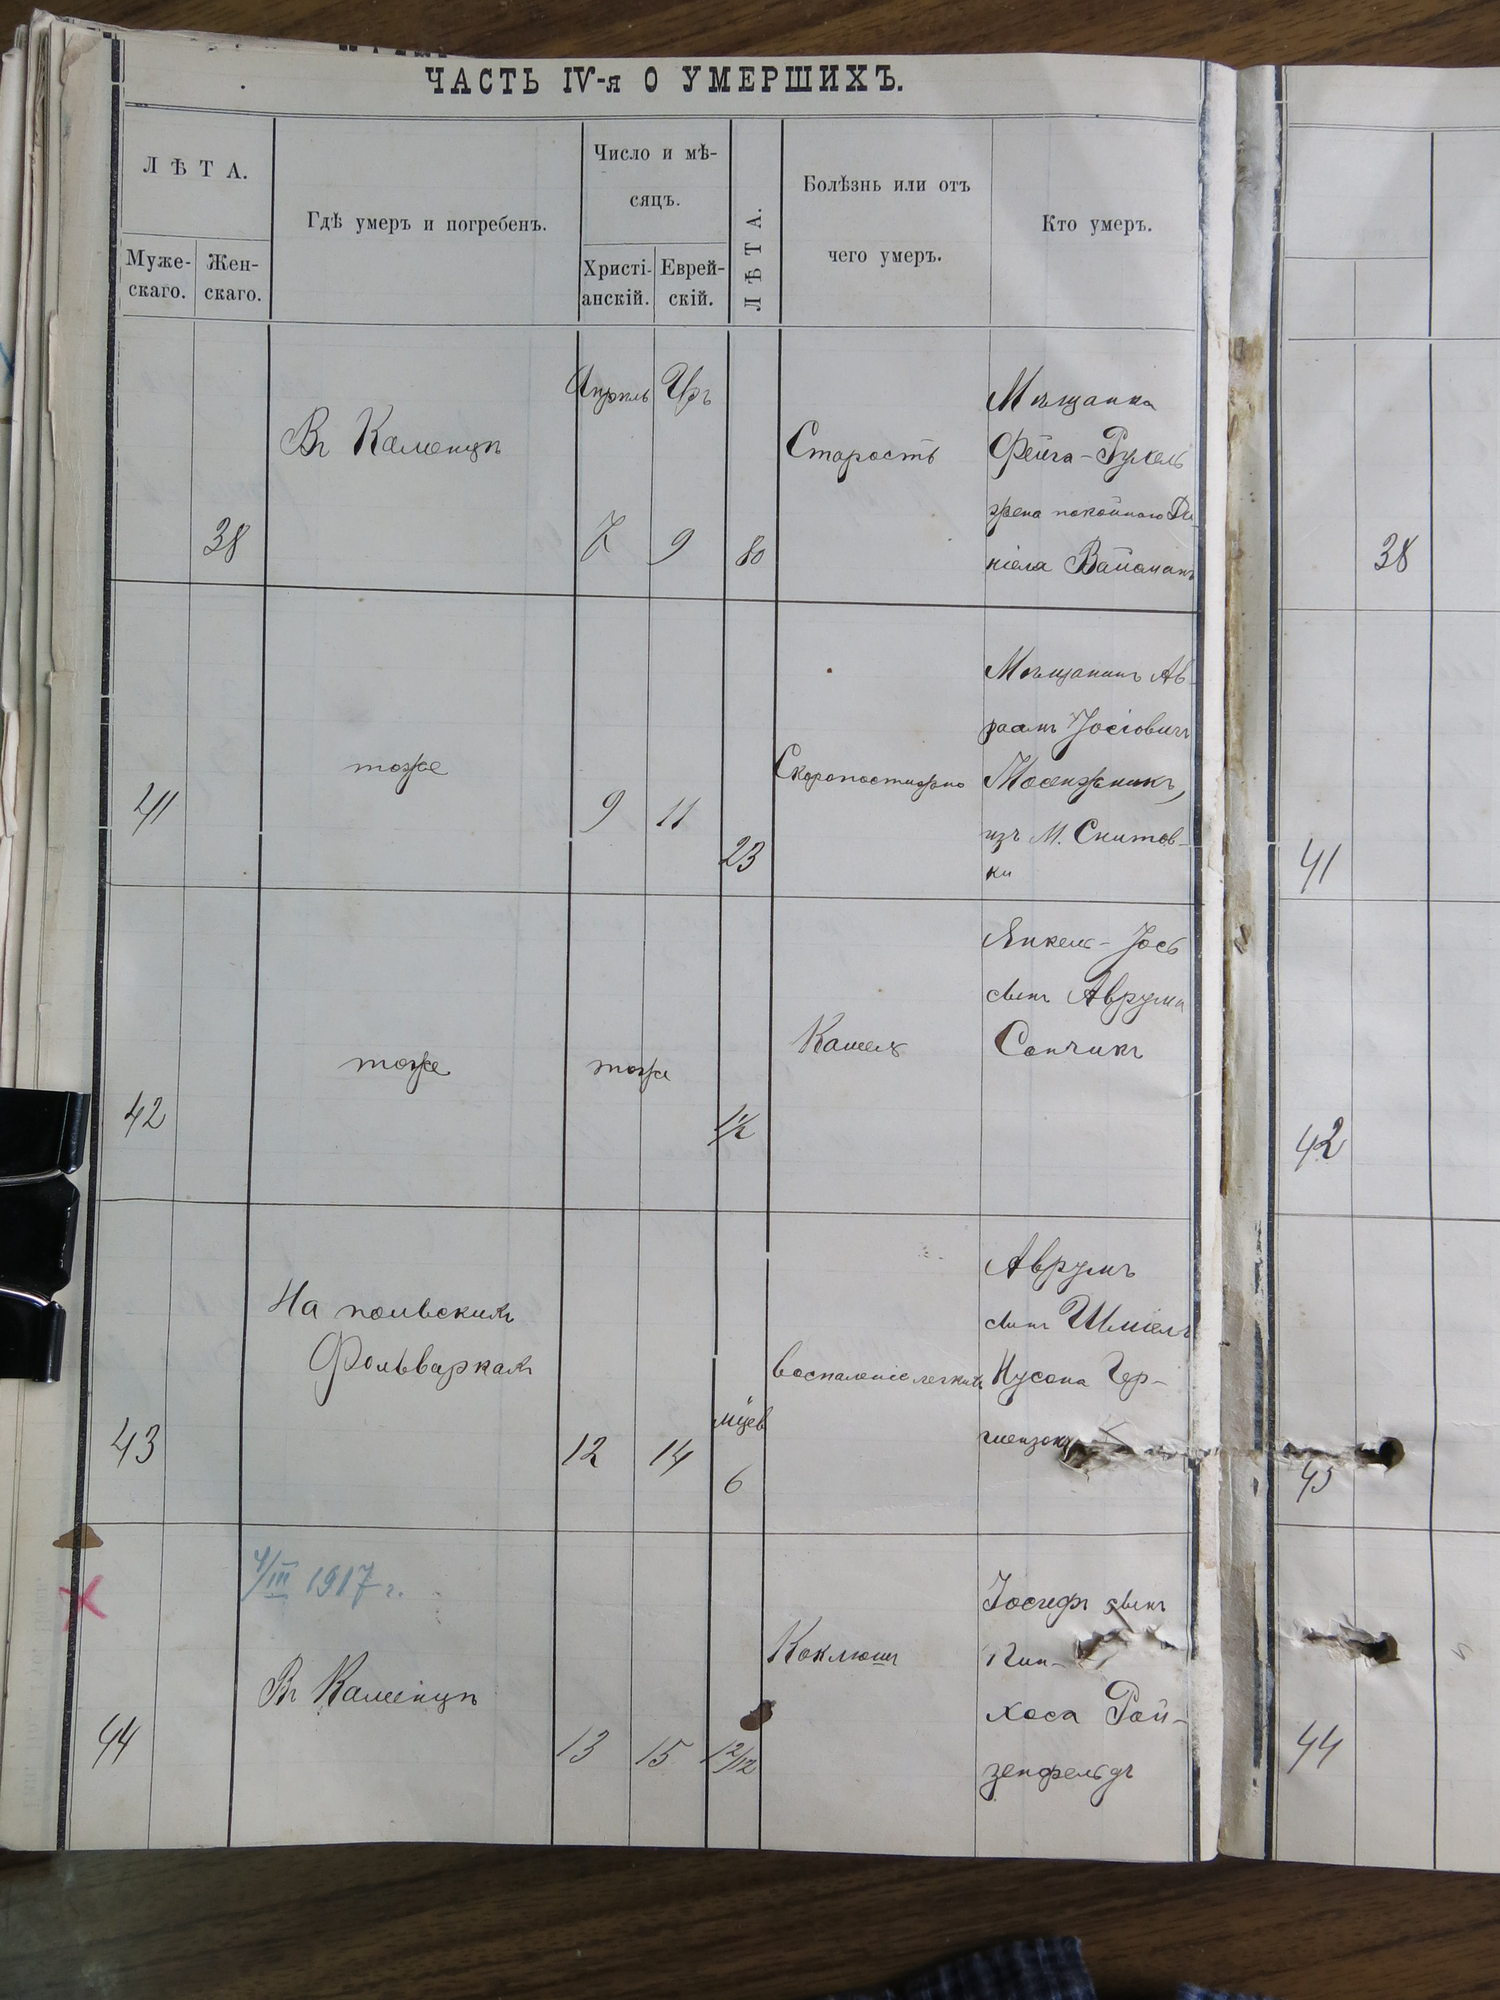 ЧАСТЬ IV-я О УМЕРШИХЪ.
ЛѢТА.
Муже-
скаго.
Жен-
скаго.
Гдѣ умеръ и погребенъ.
Число и мѣ-
сяцъ.
Христі-
анскій.
Еврей-
скій.
ЛѢТА.
Болѣзнь или отъ
чего умеръ.
Кто умеръ.
38
Въ Каменцѣ
Апрель
7
Іръ
9
80
Старость
Мѣщанка
Фейга-Рухель
жена покойнаго Да-
ніела Вайсманъ
38
41
тоже
9
11
23
Скоропостижно
Мѣщанинъ Ав-
раамъ Іосіовичъ
Мосенжникъ,
изъ М. Снитов-
ки
41
42
тоже
тоже
1½
Кашель
Янкель-Іось
сынъ Аврума
Сончикъ
42
43
На польскихъ
Фольваркахъ
12
14
мцев
6
воспаленіе легкихъ
Аврумъ
сынъ Шміель
Нусона Гер-
43
4/III 1917 г.
44
Въ Каменцѣ
13
15
1 2/12
Коклюшъ
Іосифъ сынъ
Пин-
хоса Рой-
зенфельдъ
44